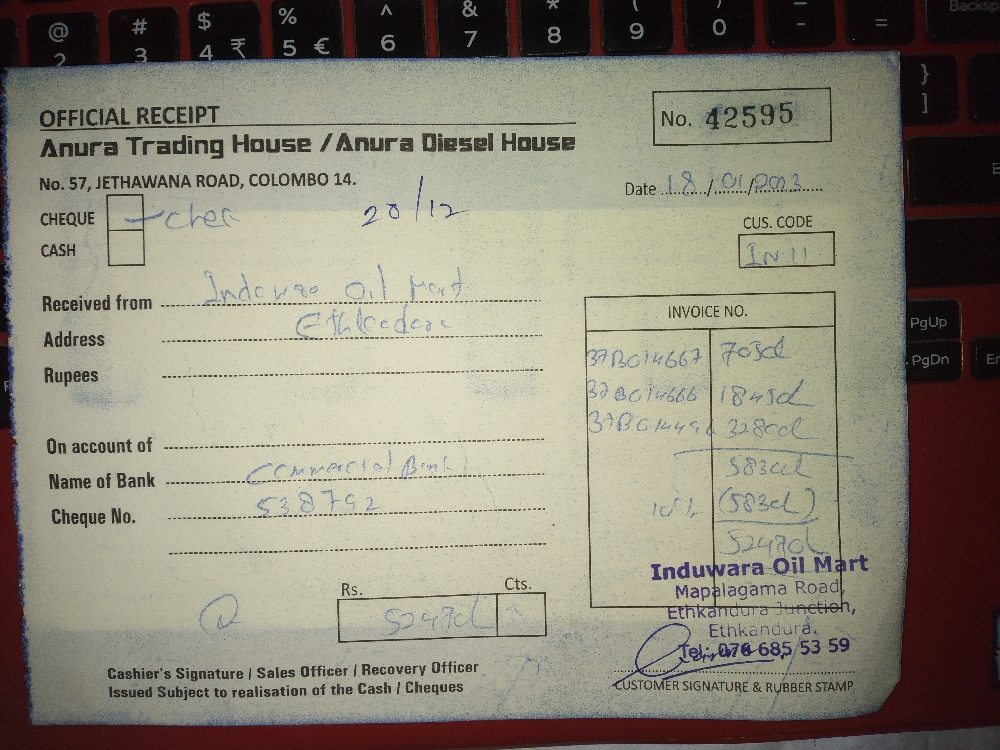 OFFICIAL RECEIPT
No. 42595
Anura Trading House / Anura Diesel House
No. 57, JETHAWANA ROAD, COLOMBO 14.
Date 18/01/2023
CHEQUE
20/12
CASH
CUS. CODE
IN 11
Received from Induwara Oil Mart
Address Ethkandura
Rupees
INVOICE NO.
37B014667
37B014666
37B01449
On account of
Name of Bank Commercial Bank
Cheque No. 538792
10%
Rs. Cts.
Induwara Oil Mart
Mapalagama Road,
Ethkandura Junction,
Ethkandura.
Tel: 076 685 53 59
Cashier's Signature / Sales Officer / Recovery Officer
Issued Subject to realisation of the Cash / Cheques
CUSTOMER SIGNATURE & RUBBER STAMP
@ 2
# 3
$ 4 ₹
% 5 €
^ 6
& 7
* 8
( 9
) 0
- =
} ]
PgUp
PgDn